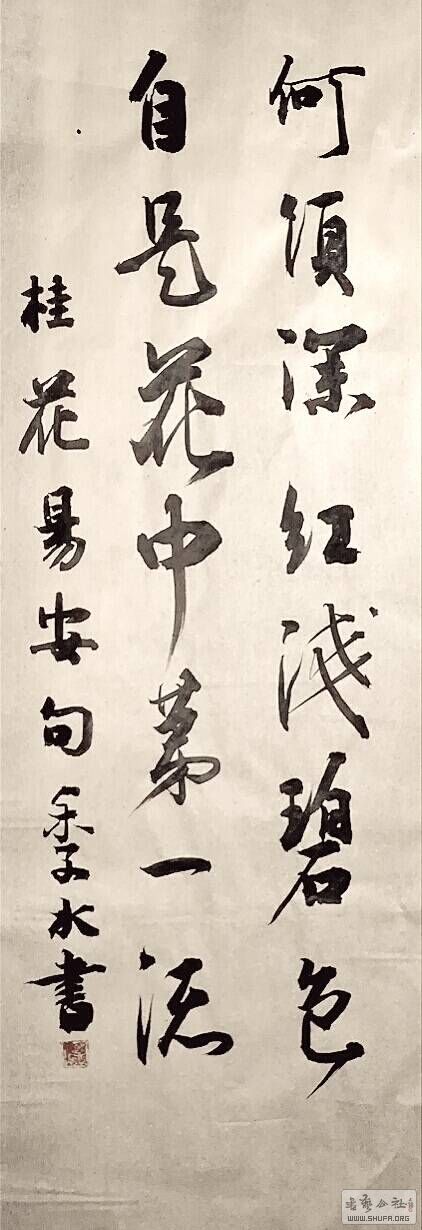 何须深红浅碧色
自是花中第一流
桂花易安句季水書
書艺公社
WWW.SHUFA.ORG